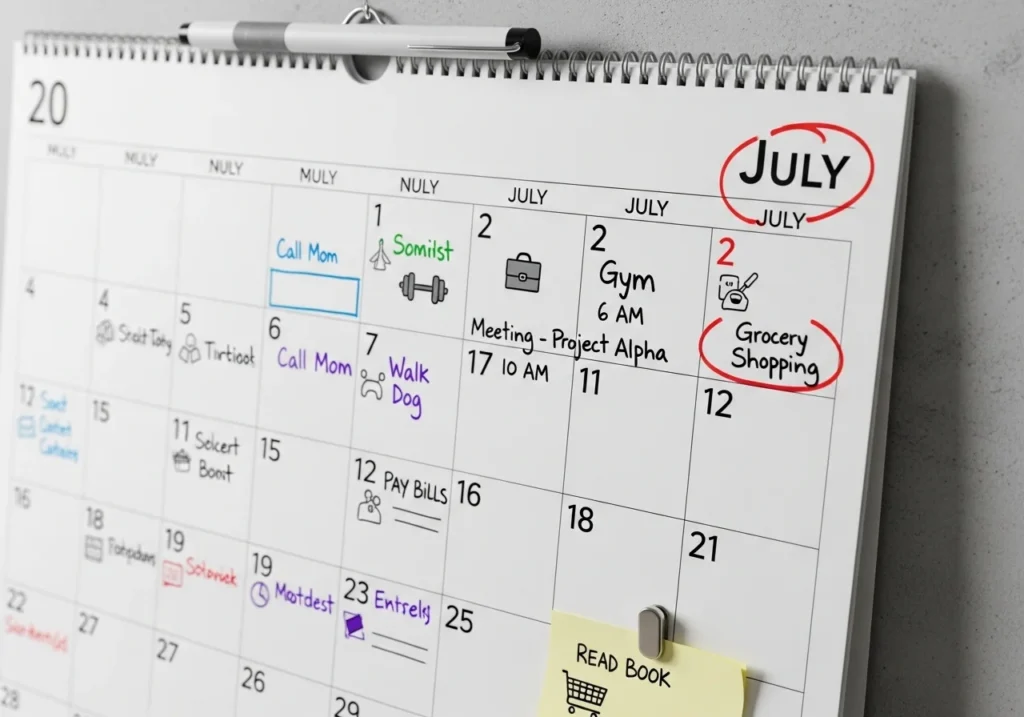 20
JULY
MULY MULY NULY MULY NULY JULY JULY JULY
1 2 2 2
Call Mom
Somilst
Gym
6 AM
Meeting - Project Alpha
Grocery
Shopping
4 4 5 6 7 17 10 AM 11 12
Call Mom
Walk
Dog
12 15 11 15 12 16 18 21
Selcert
PAY BILLS
16 18 19 19 23 25
Motdest
22 27 27 26 29
READ BOOK
28